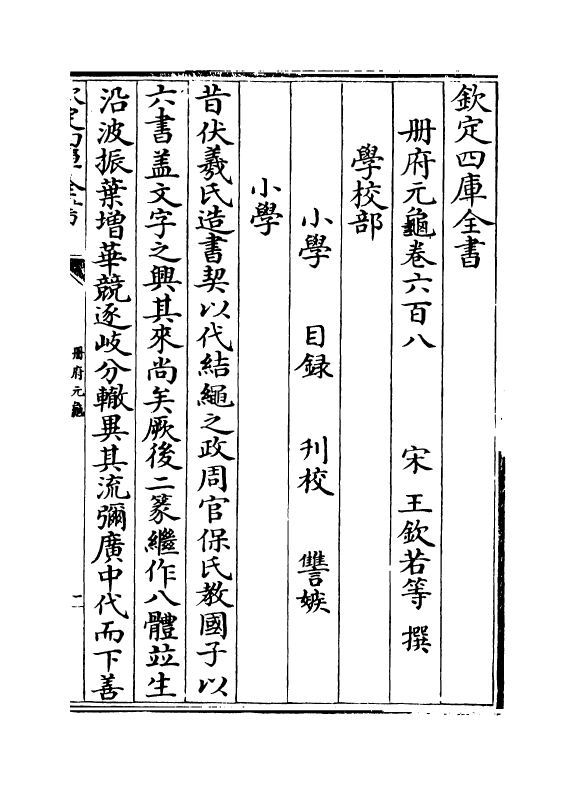 欽定四庫全書
册府元龜卷六百八　宋　王欽若等　撰
學校部
小學　目録　刋校　讐嫉
小學
昔伏羲氏造書契以代結繩之政周官保氏教國子以
六書盖文字之興其來尚矣厥後二篆繼作八體竝生
沿波振葉增華競逐岐分轍異其流彌廣中代而下善
册府元龜